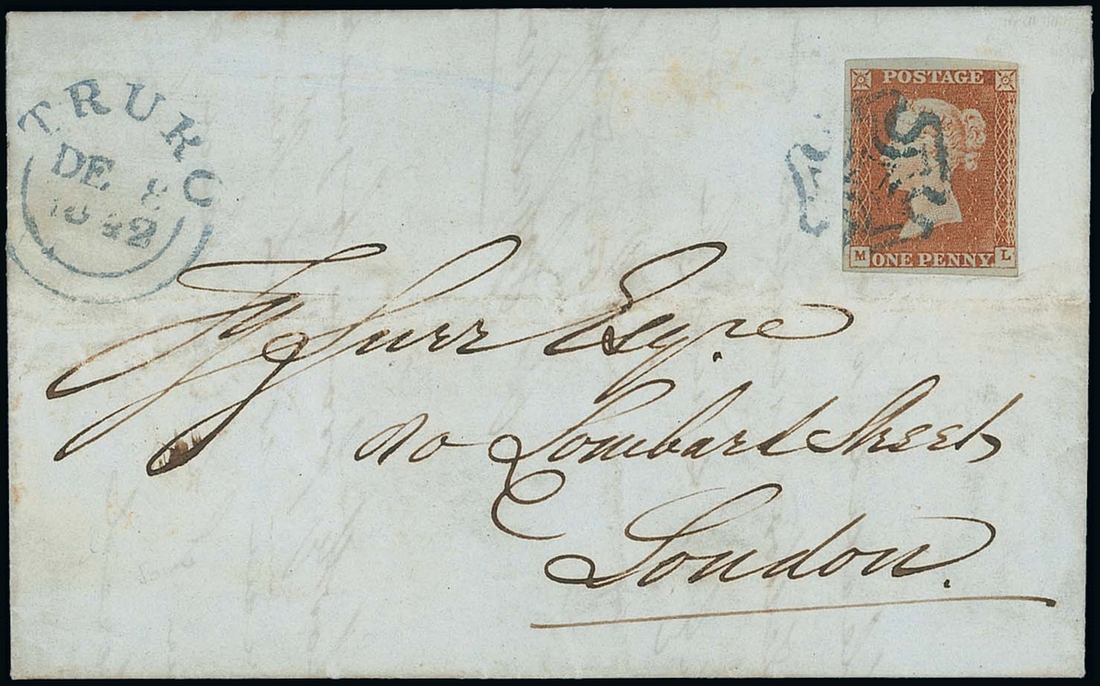 TRURO
DE 8
1842
POSTAGE
M L
ONE PENNY
Surr Esqre
80 Lombard Street
London.